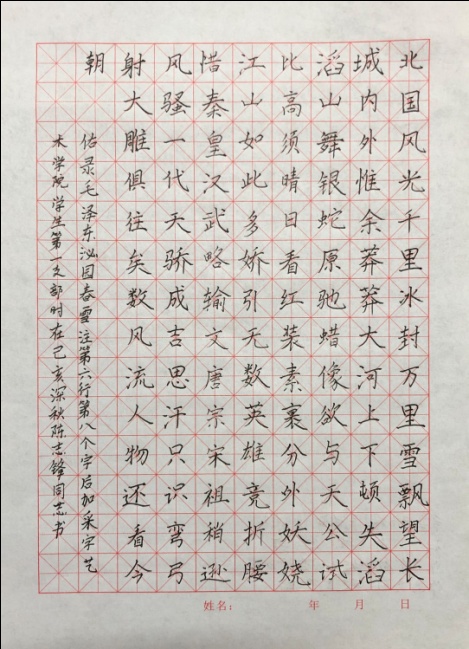 北国风光千里冰封万里雪飘望长
城内外惟余莽莽大河上下顿失滔
滔山舞银蛇原驰蜡像欲与天公试
比高须晴日看红装素裹分外妖娆
江山如此多娇引无数英雄竞折腰
惜秦皇汉武略输文唐宗宋祖稍逊
风骚一代天骄成吉思汗只识弯弓
射大雕俱往矣数风流人物还看今
朝
佑录毛泽东泌园春雪注第六行第八个字后加采字艺
术学院学生第一支部时在己亥深秋陈志锋同志书
姓名： 年 月 日